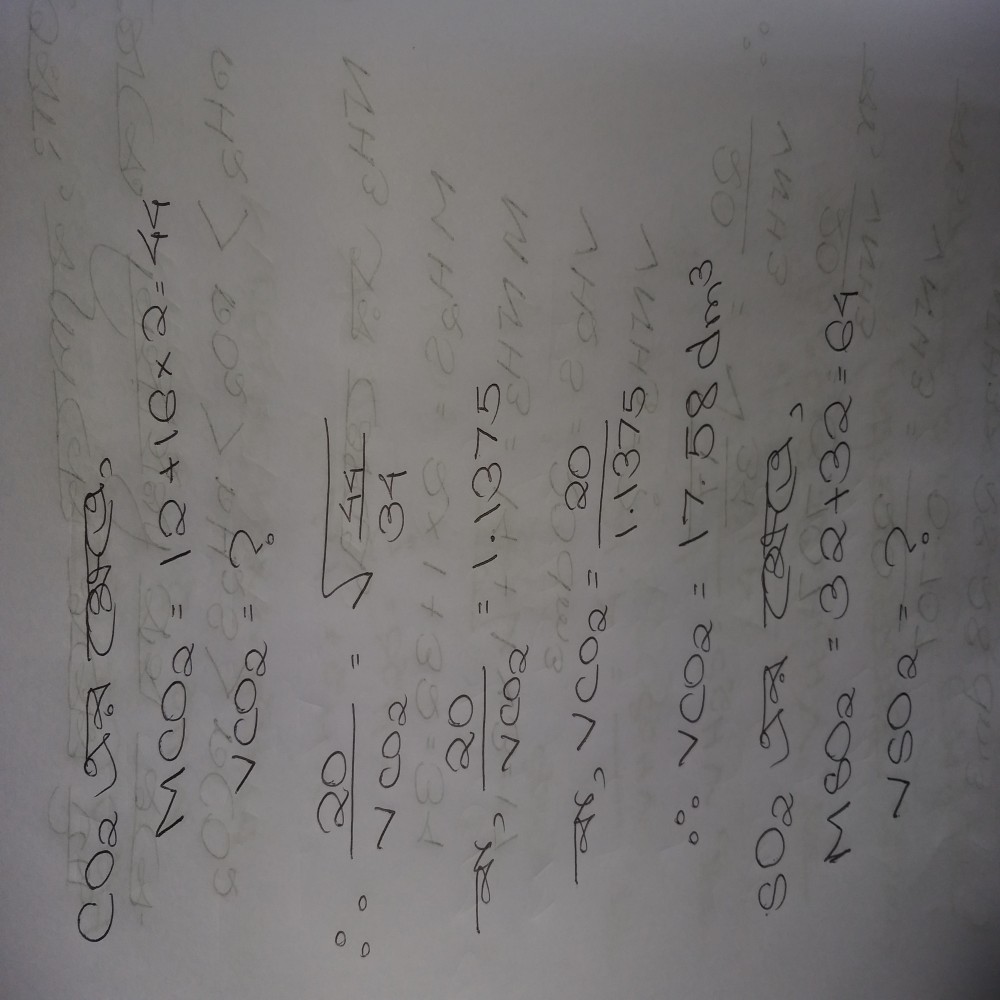 CO2 এর ক্ষেত্রে,
MCO2 = 12+16×2=44
VCO2 = ?
∴ 20/VCO2 = √44/34
বা, 20/VCO2 = 1.1375
বা, VCO2 = 20/1.1375
∴ VCO2 = 17.58 dm3
SO2 এর ক্ষেত্রে,
MSO2 = 32+32=64
VSO2 = ?